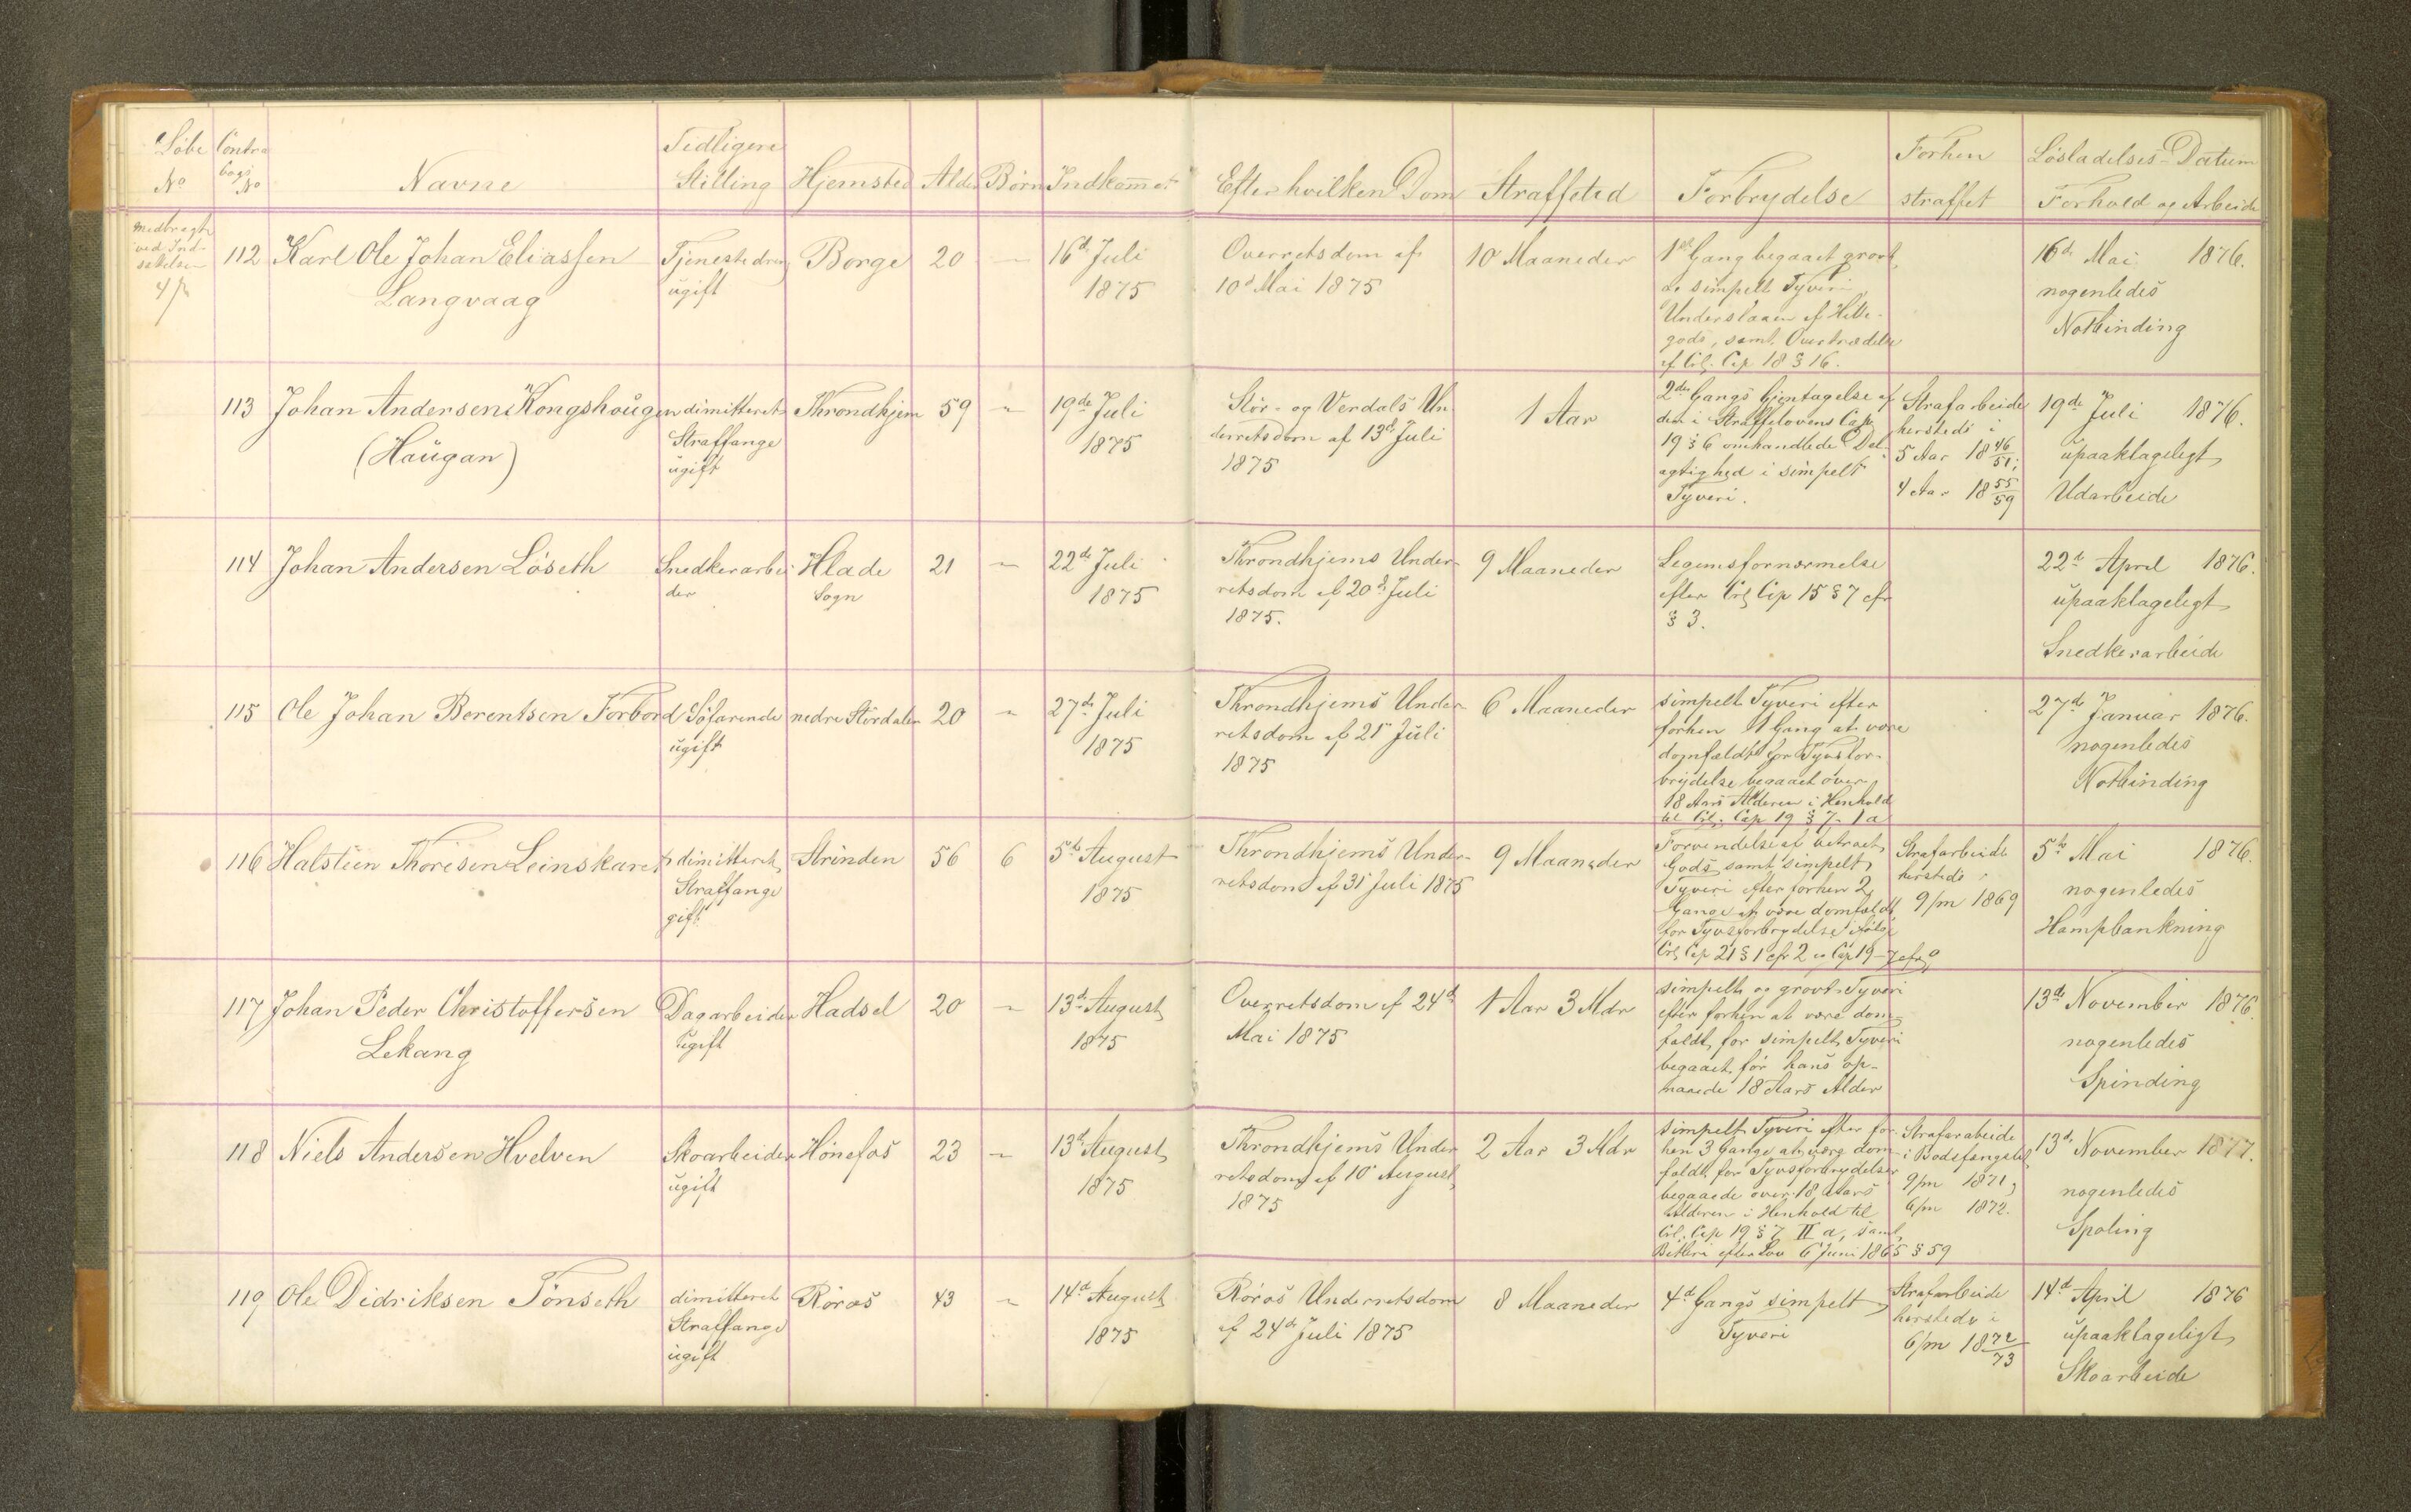 Löbe No
Contra bogs No
Navne
Tidligere Stilling
Hjemsted
Alder
Börn
Indkommet
Efter hvilken Dom
Straffetid
Forbrydelse
Forhen straffet
Løsladelses-Datum
Forhold og Arbeide
Medbragt
ved Ind-
sættelsen
112
Karl Ole Johan Eliassen
Langvaag
Tjenestedreng
ugift
Borge
20
"
16d Juli
1875
Overretsdom af
10d Mai 1875
10 Maaneder
1ste Gang begaaet grovt
og simpelt Tyveri
Underslaaen af Hitte-
gods, samt Overtrædelse
af Crl. Cap 18 § 16.
16d Mai 1876.
nogenledes
Notbinding
113
Johan Andersen Kongshougen
(Haugan)
dimitteret
Straffange
ugift
Throndhjem
59
"
19de Juli
1875
Stör- og Verdals Un-
derretsdom af 13d Juli
1875
1 Aar
2den Gangs Gjentagelse af
den i Straffelovens Cap
19 § 6 omhandlede Del-
agtighed i simpelt
Tyveri.
Strafarbeide
hersteds i
5 Aar 1846/51;
4 Aar 1855/59
19de Juli 1876.
upaaklageligt
Udarbeide
114
Johan Andersen Löseth
Snedkerarbei
der
Hlade
Sogn
21
"
22de Juli
1875
Throndhjems Under-
retsdom af 20d Juli
1875.
9 Maaneder
Legemsfornærmelse
efter Crl Cap 15 § 7 cfr
§ 3.
22d April 1876.
upaaklageligt
Snedkerarbeide
115
Ole Johan Berentsen Forbord
Söfarende
ugift
nedre Stördalen
20
"
27de Juli
1875
Throndhjems Under-
retsdom af 21 Juli
1875
6 Maaneder
simpelt Tyveri efter
forhen 1 Gang at være
domfældt for Tyvsfor-
brydelse begaaet over
18 Aars Alderen i Henhold
til Crl. Cap 19 § 7- 1 a
27d Januar 1876.
nogenledes
Notbinding
116
Halstein Thoresen Leinskaret
dimitteret
Straffange
gift
Strinden
56
6
5te August
1875
Throndhjems Under-
retsdom af 31 Juli 1875
9 Maaneder
Forvendelse af betroet
Gods samt simpelt
Tyveri efter forhen 2
Gange at være domfældt
for Tyvsforbrydelse ifølge
Crl Cap 21 § 1 cfr 2 og Cap 19-7 cfr
Strafarbeide
hersteds i
9/m 1869
5te Mai 1876.
nogenledes
Hampbankning
117
Johan Peder Christoffersen
Lekang
Dagarbeider
ugift
Hadsel
20
"
13d August
1875
Overretsdom af 24d
Mai 1875
1 Aar 3 Mdr
simpelt og grovt Tyveri
efter forhen at være dom-
fældt for simpelt Tyveri
begaaet før hans op-
naaede 18 Aars Alder
13de November 1876.
nogenledes
Spinding
118
Niels Andersen Hvelven
Skoarbeider
ugift
Hönefos
23
"
13d August
1875
Throndhjems Under
retsdom af 10 August
1875
2 Aar 3 Mdr
simpelt Tyveri efter for-
hen 3 Gange at være dom-
fældt for Tyvsforbrydelser
begaaede over 18 Aars
Alderen i Henhold til
Crl. Cap 19 § 7 II a, samt
Betleri efter Lov 6 Juni 1865 § 59
Strafarabeide
i Bodsfængslet
9/m 1871;
6/m 1872.
13d November 1877.
nogenledes
Spoling
119
Ole Didriksen Tönseth
dimitteret
Straffange
ugift
Röraas
43
"
14d August
1875
Röraas Underretsdom
af 24de Juli 1875
8 Maaneder
4d Gangs simpelt
Tyveri
Strafarbeide
hersteds i
6/m 1872/73
14d April 1876
upaaklageligt
Skoarbeide